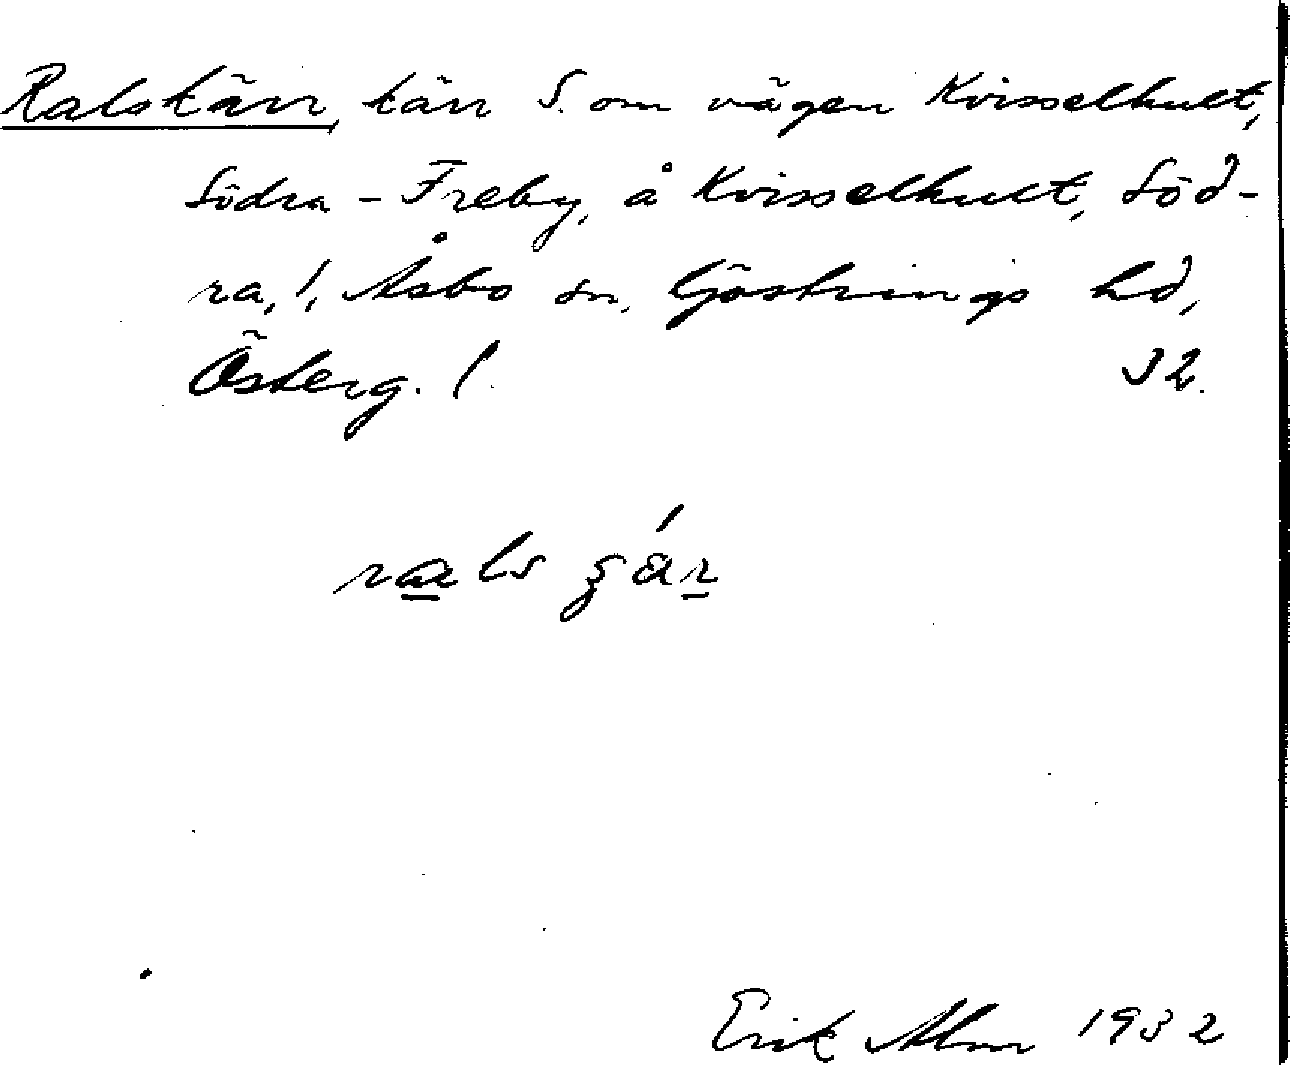 Ralskärr, kärr S. om vägen Kvisselhult,
Södra - Freby, å Kvisselhult, Söd-
ra, !, Åsbo sn, Göstrings hd,
Österg. !. 32.
Erik Alm 1932